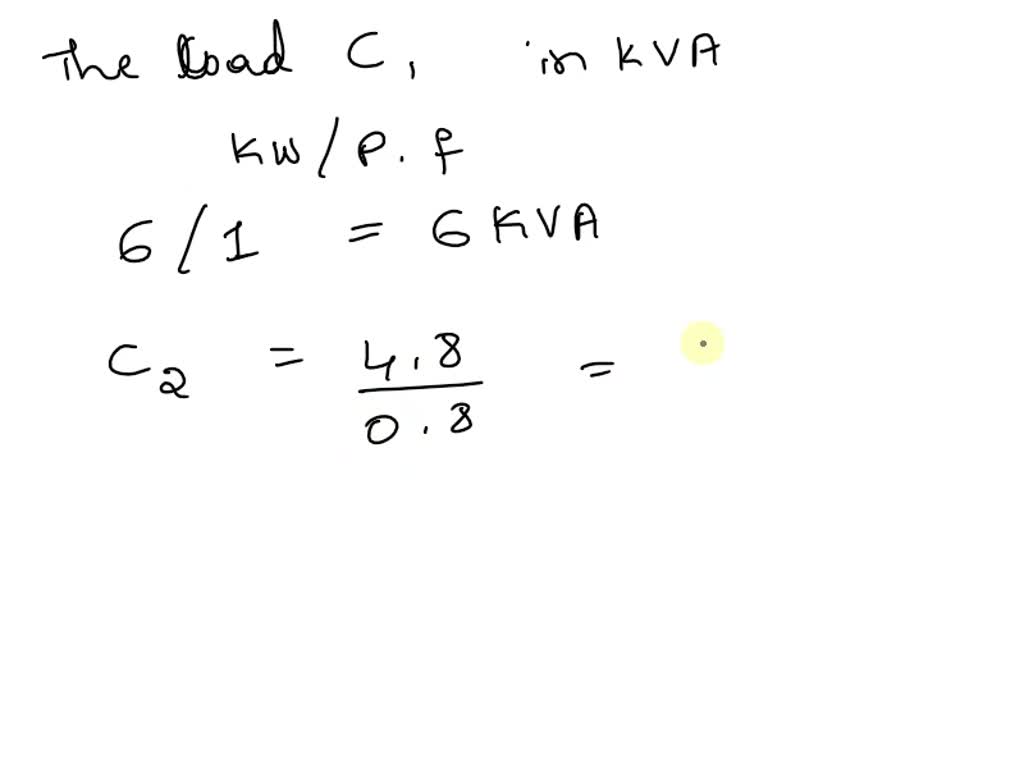 The load C, in KVA
KW/P.f
6/1 = 6 KVA
C2 = 4.8/0.8 =